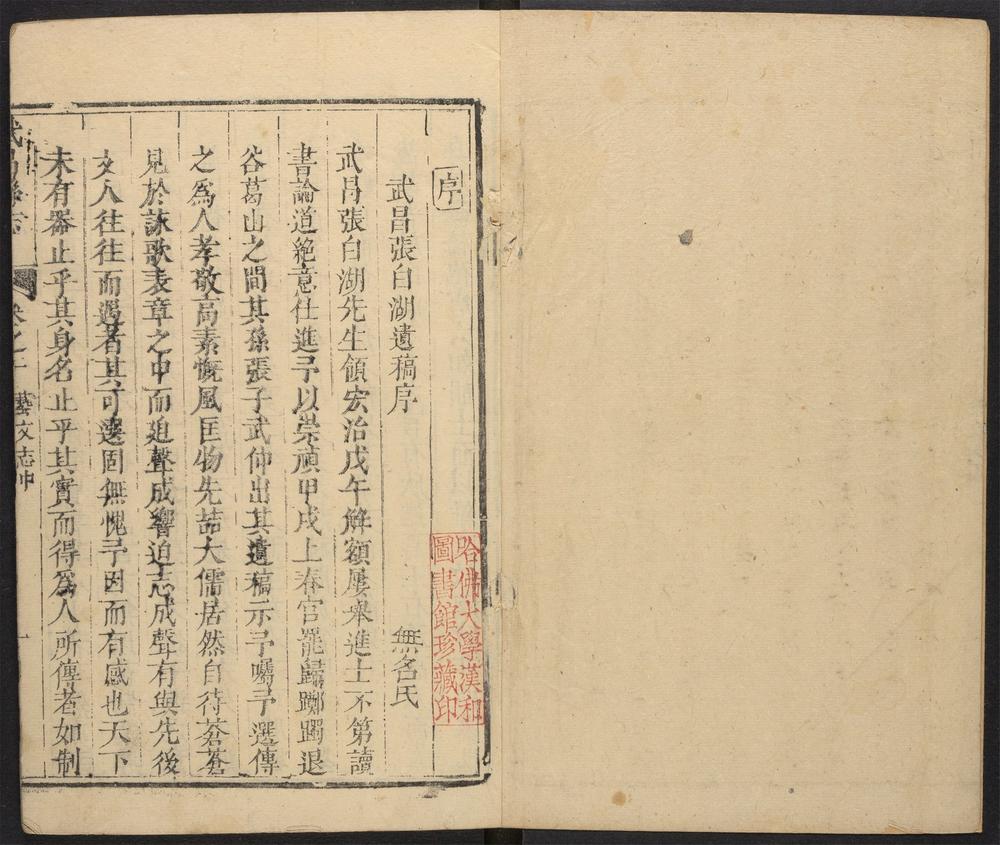 序
武昌張白湖遺稿序
無名氏
武昌張白湖先生領宏治戊午解額屢舉進士不第讀
書論道絕意仕進予以崇禎甲戌上春官罷歸躑躅退
谷葛山之間其孫張子武仲出其遺稿示予囑予選傳
之爲人孝敬高素慨風匡物先喆大儒居然自待蒼蒼
見於詠歌表章之中而廹聲成響迫志成聲有與先後
文人往往而遇者其可邊固無愧予因而有感也天下
未有器止乎其身名止乎其實而得爲人所傳者如制
武昌縣志
卷之十
藝文志中
一
哈佛大學漢和
圖書館珍藏印